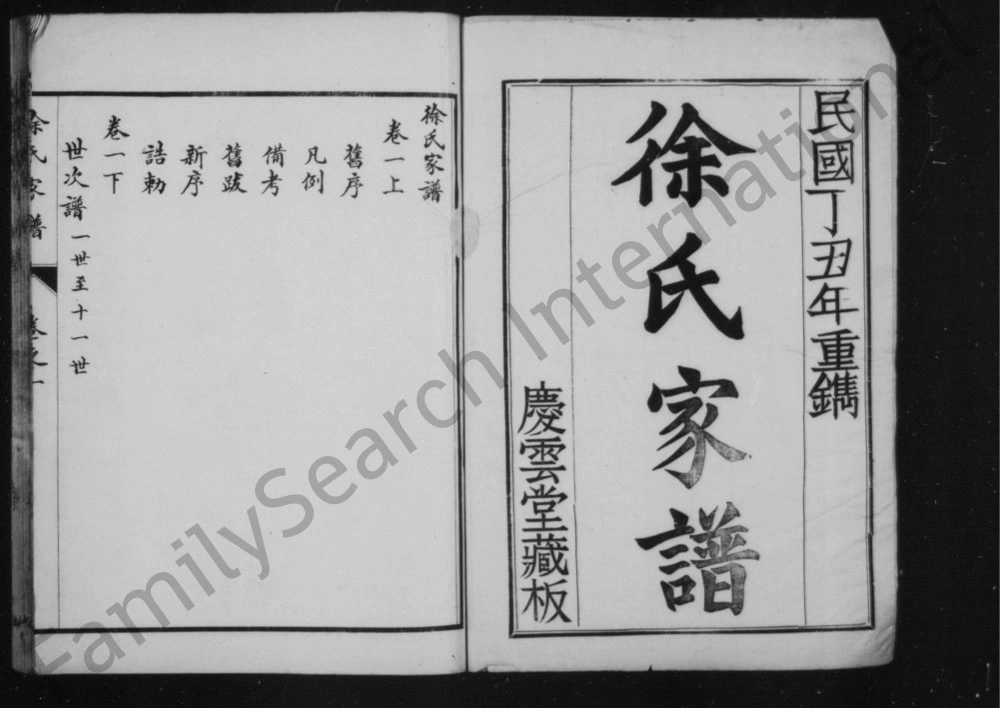 民國丁丑年重鐫
徐氏家譜
慶雲堂藏板
徐氏家譜
卷一上
舊序
凡例
備考
舊跋
新序
誥勅
卷一下
世次譜 一世至十一世
徐氏家譜 卷之一
FamilySearch International